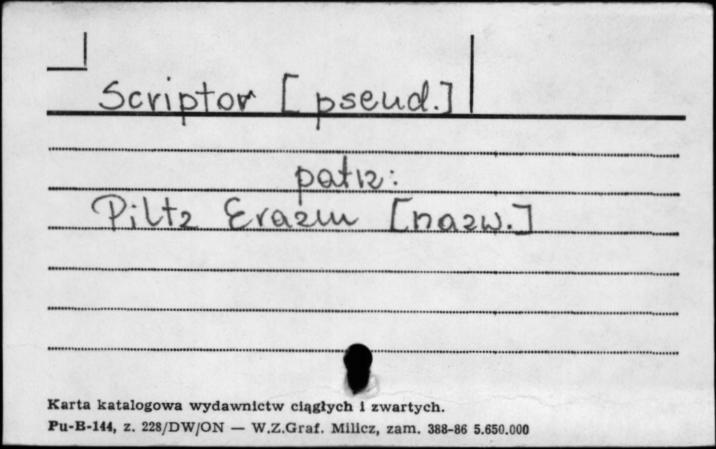 Scriptor [pseud.]
patrz:
Piltz Erazm [nazw.]
Karta katalogowa wydawnictw ciągłych i zwartych.
Pu-B-144, z. 228/DW/ON — W.Z.Graf. Milicz, zam. 388-86 5.650.000